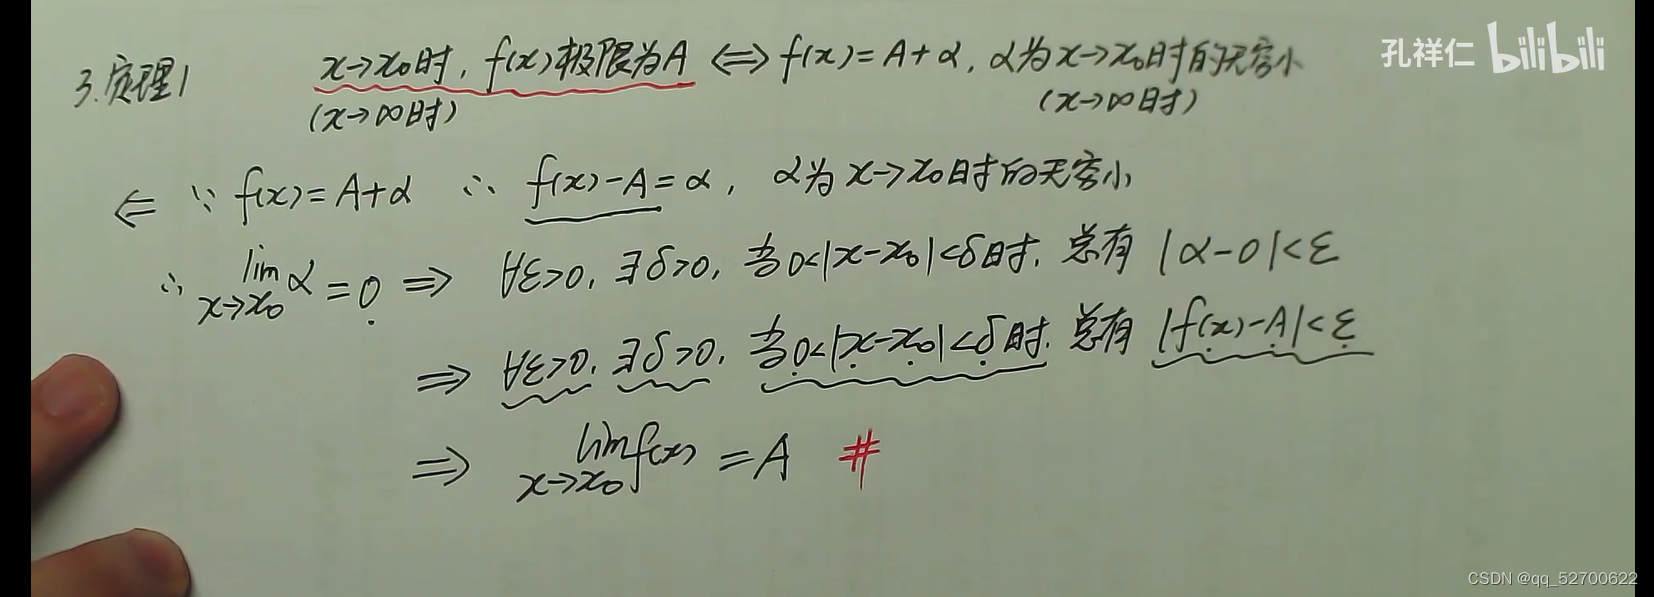 孔祥仁 bilibili
3.定理1 x→x₀时,f(x)极限为A ⟺ f(x)=A+α,α为x→x₀时的无穷小
(x→∞时) (x→∞时)
⇐ ∵ f(x)=A+α ∴ f(x)-A=α, α为x→x₀时的无穷小
∴ lim α = 0 ⇒ ∀ε>0,∃δ>0,当0<|x-x₀|<δ时,总有|α-0|<ε
x→x₀
⇒ ∀ε>0,∃δ>0,当0<|x-x₀|<δ时,总有|f(x)-A|<ε
⇒ lim f(x) = A #
x→x₀
CSDN @qq_52700622